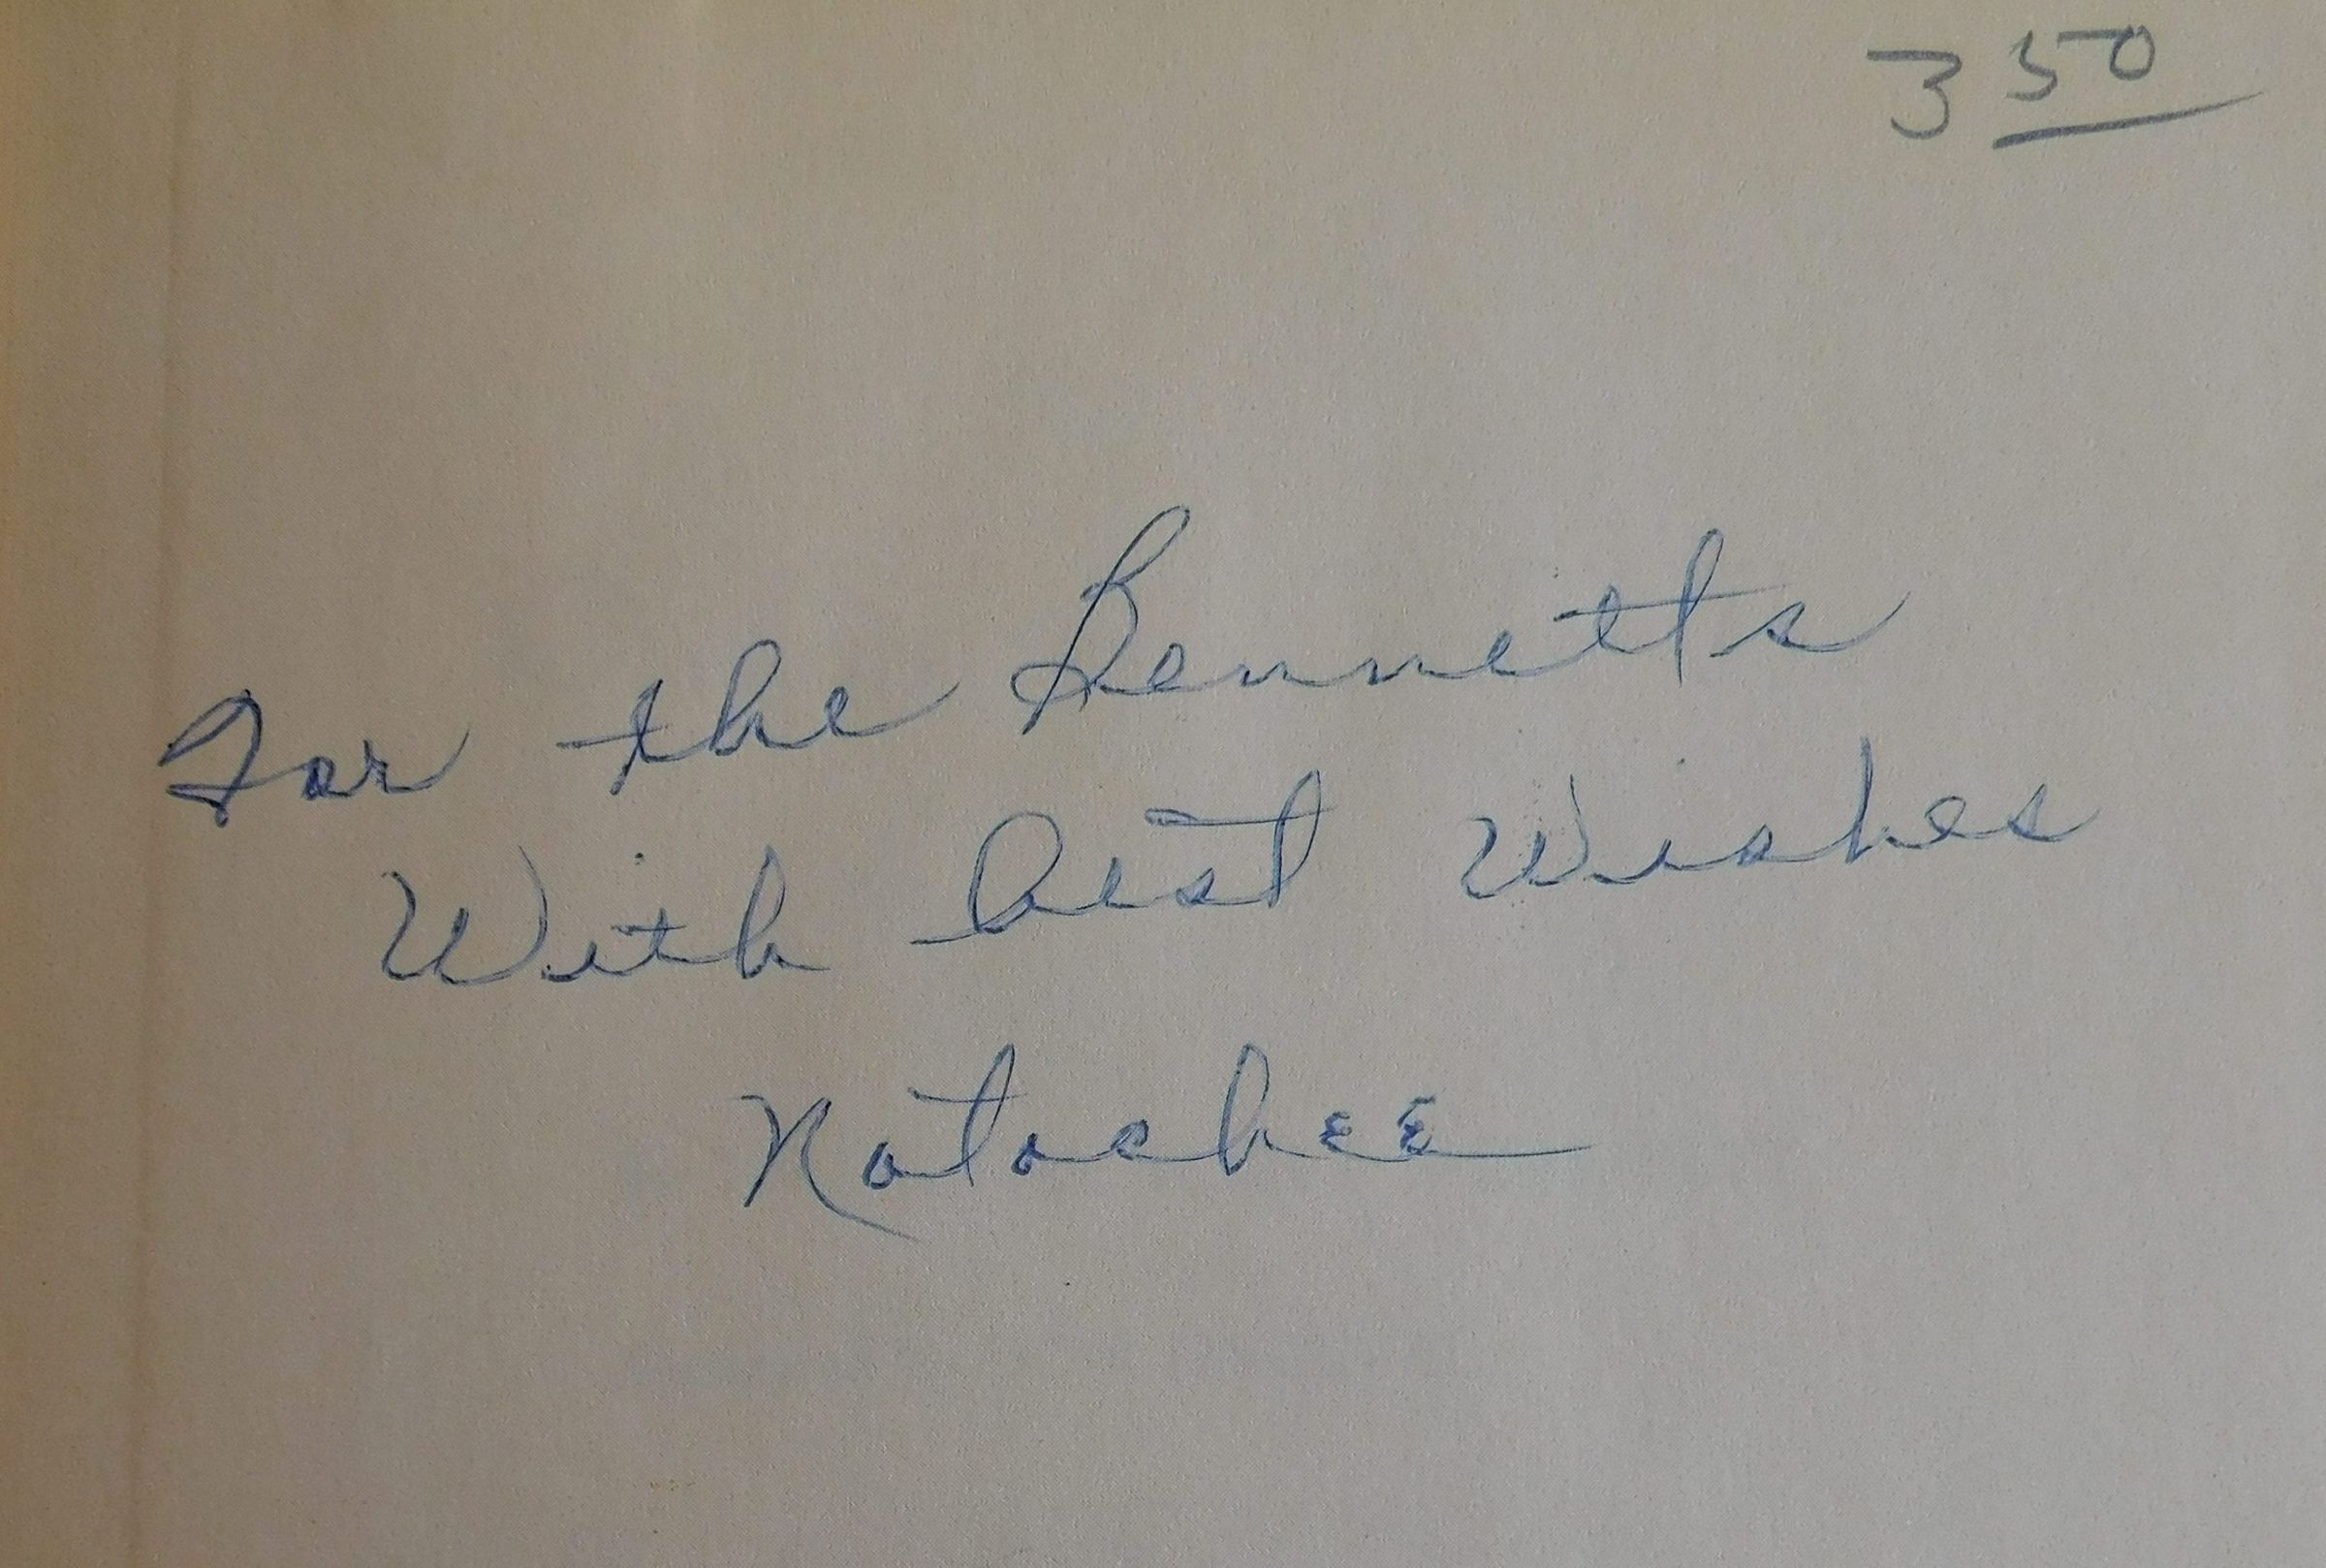 3 50
For the Bennetts
With best Wishes
Natachee